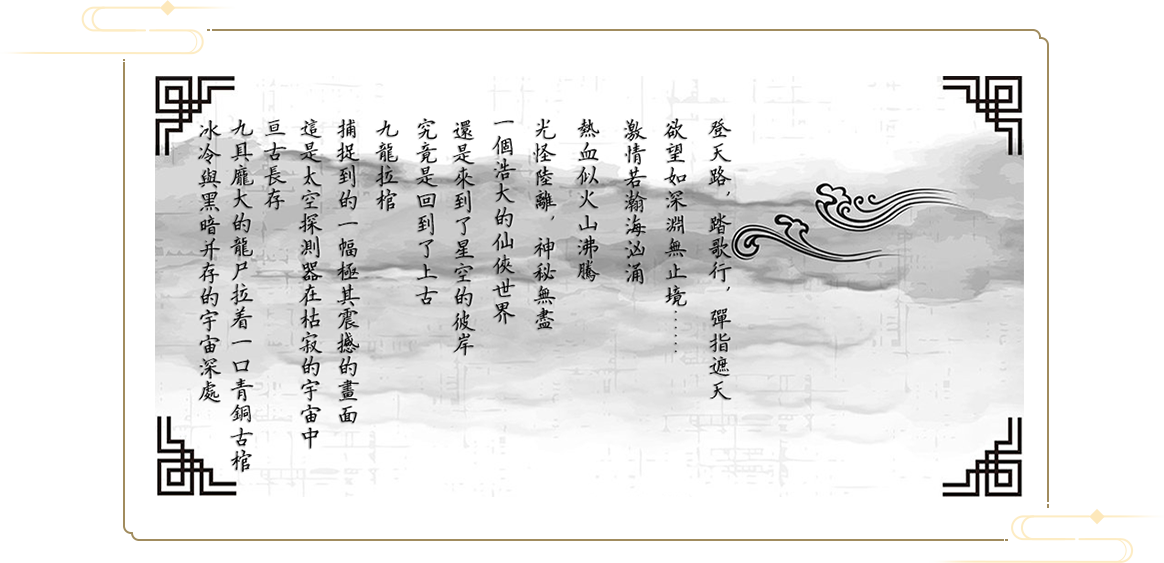 冰冷與黑暗并存的宇宙深處
九具龐大的龍尸拉着一口青銅古棺
亘古長存
這是太空探測器在枯寂的宇宙中
捕捉到的一幅極其震撼的畫面
九龍拉棺
究竟是回到了上古
還是來到了星空的彼岸
一個浩大的仙俠世界
光怪陸離，神秘無盡
熱血似火山沸騰
激情若瀚海汹涌
欲望如深淵無止境……
登天路，踏歌行，彈指遮天